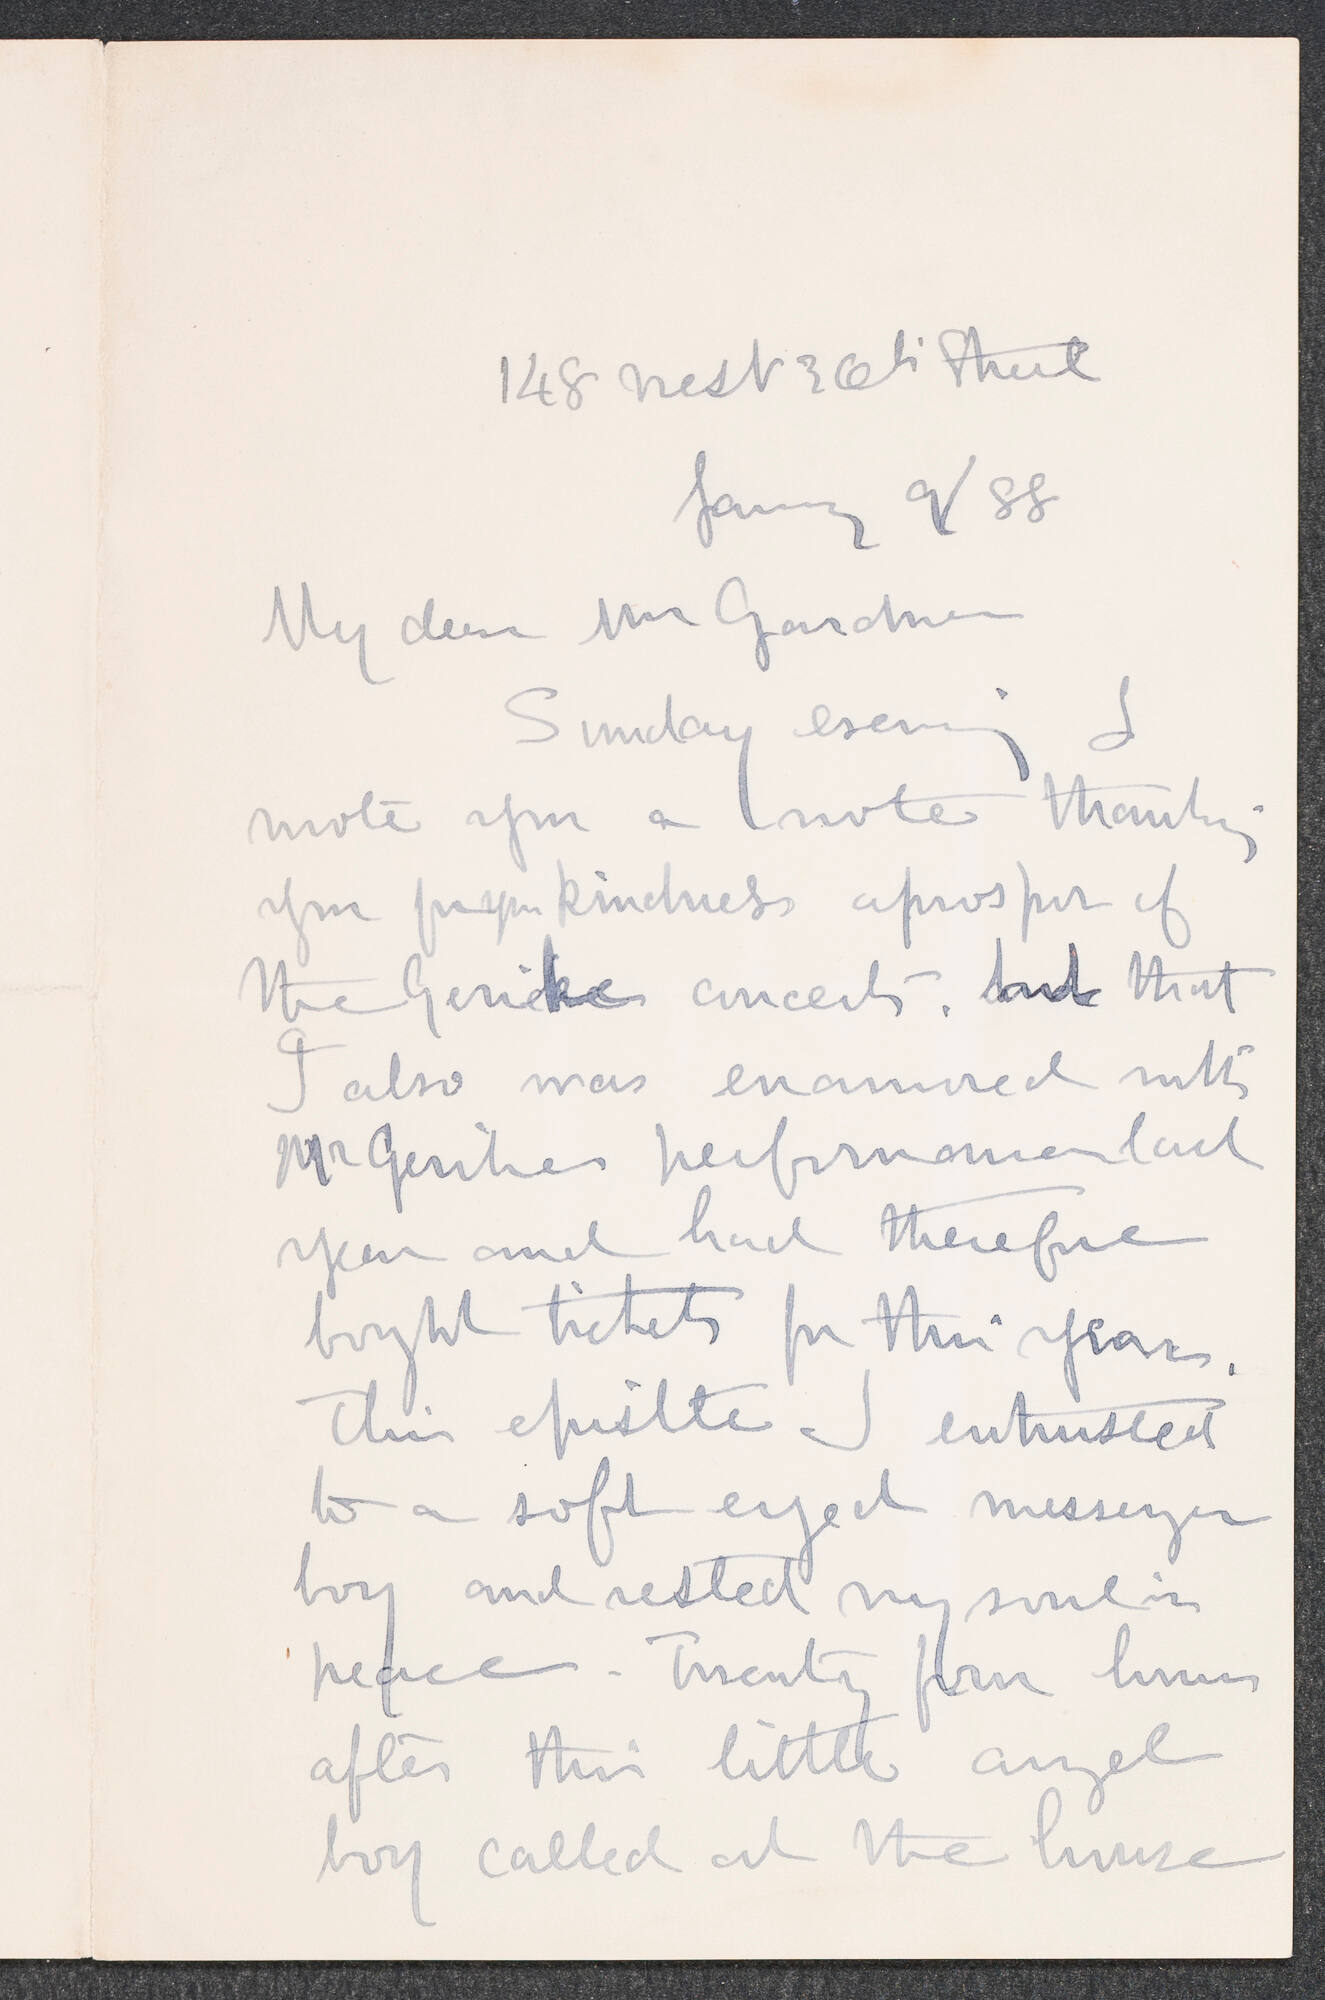 148 West 36th Street
January 9/88
My dear Mrs Gardner
Sunday evening I
wrote you a note thanking
you for your kindness apropos of
the Gericke concerts, and that
I also was enamored with
Mr Gerickes performances last
year and had therefore
bought tickets for this year.
This epistle I entrusted
to a soft eyed messenger
boy and rested my soul in
peace - Twenty four hours
after this little angel
boy called at the house